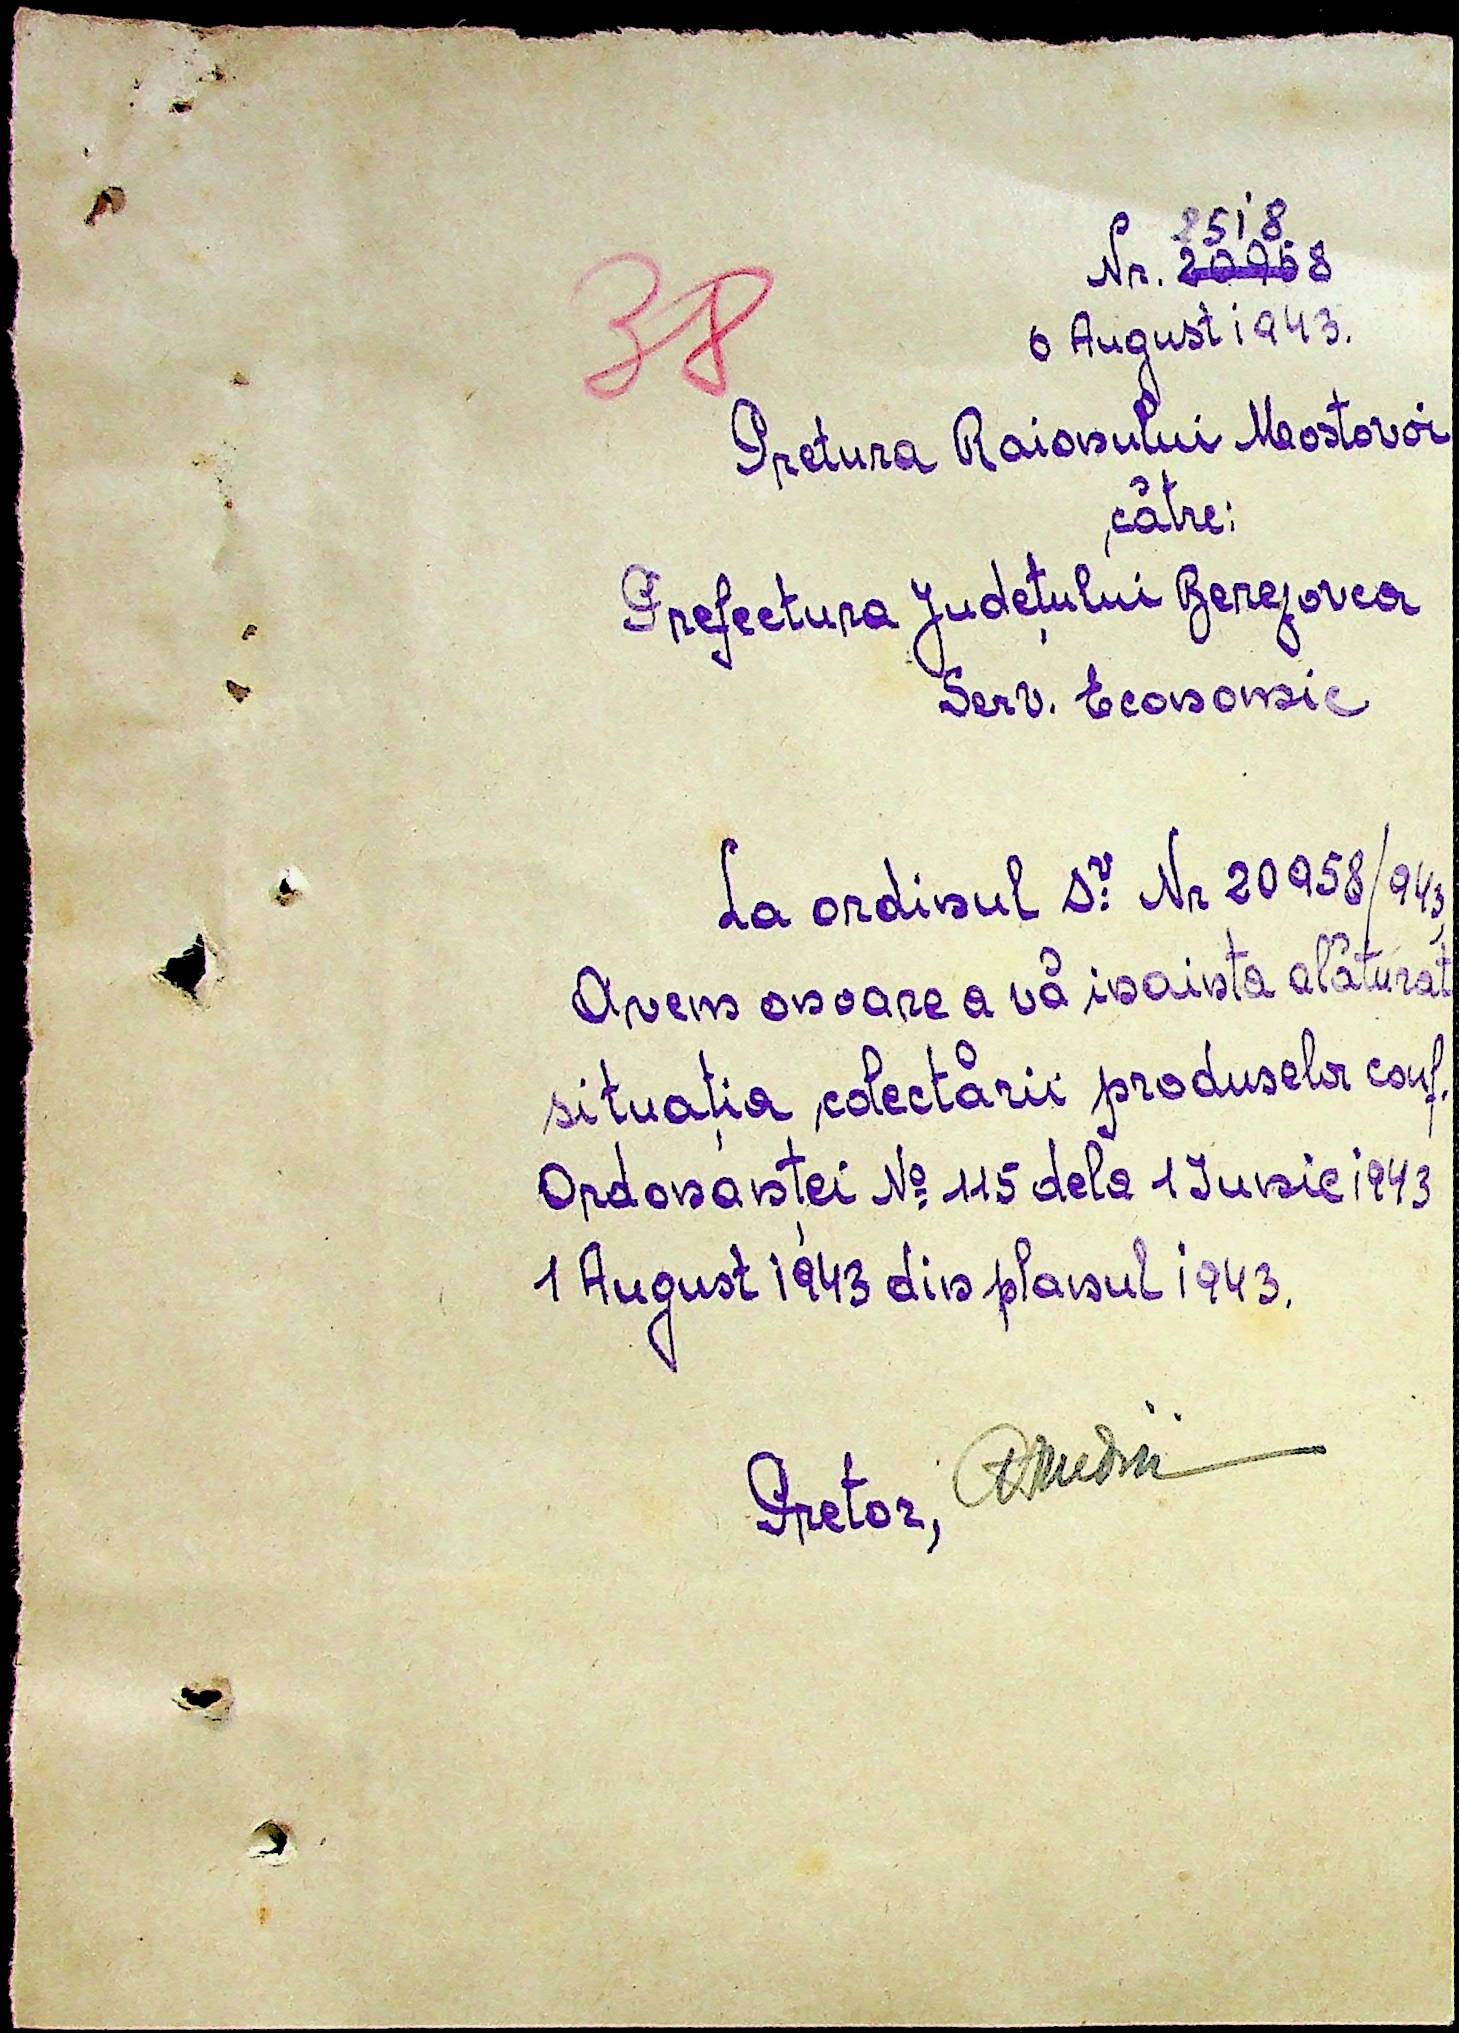 2518
Nr. 20968
38
6 August 1943.
Pretura Raionului Mostovoi
către:
Prefectura Județului Berezovca
Serv. Economic
La ordinul Dv: Nr 20958/943,
Avem onoare a vă inainta alăturat
situația colectării produselor conf.
Ordonanței No: 115 dela 1 Iunie 1943
1 August 1943 din planul 1943.
Pretor,